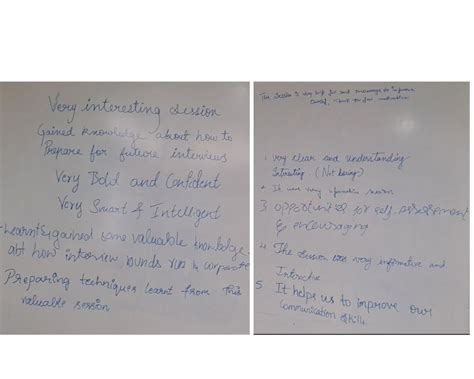 Very interesting session
Gained knowledge about how to
Prepare for future interviews
Very Bold and Confident
Very Smart & Intelligent
- Learnt & gained some valuable knowledge
abt how interview runs in corporate
Preparing techniques learnt from this
valuable session
The session is very help for and to improve
1. Very clear and understanding
Intresting (Not boring)
2. It was very session
3. opportunities for self-assessment
& encouraging
4. The session was very informative and
5. It helps us to improve our
Communication skills.